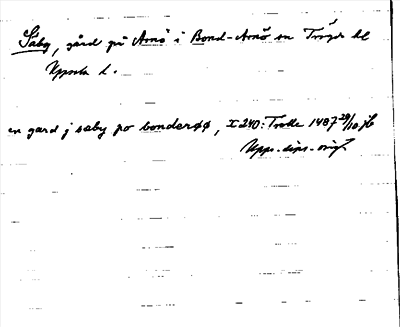 Säby, gård på Arnö i Bond-Arnö sn Trögds hd
Uppsala l.
en gard j saby po bonderøø, X 240: Trolle 1487 29/10 jb
Upps. dipl. orig